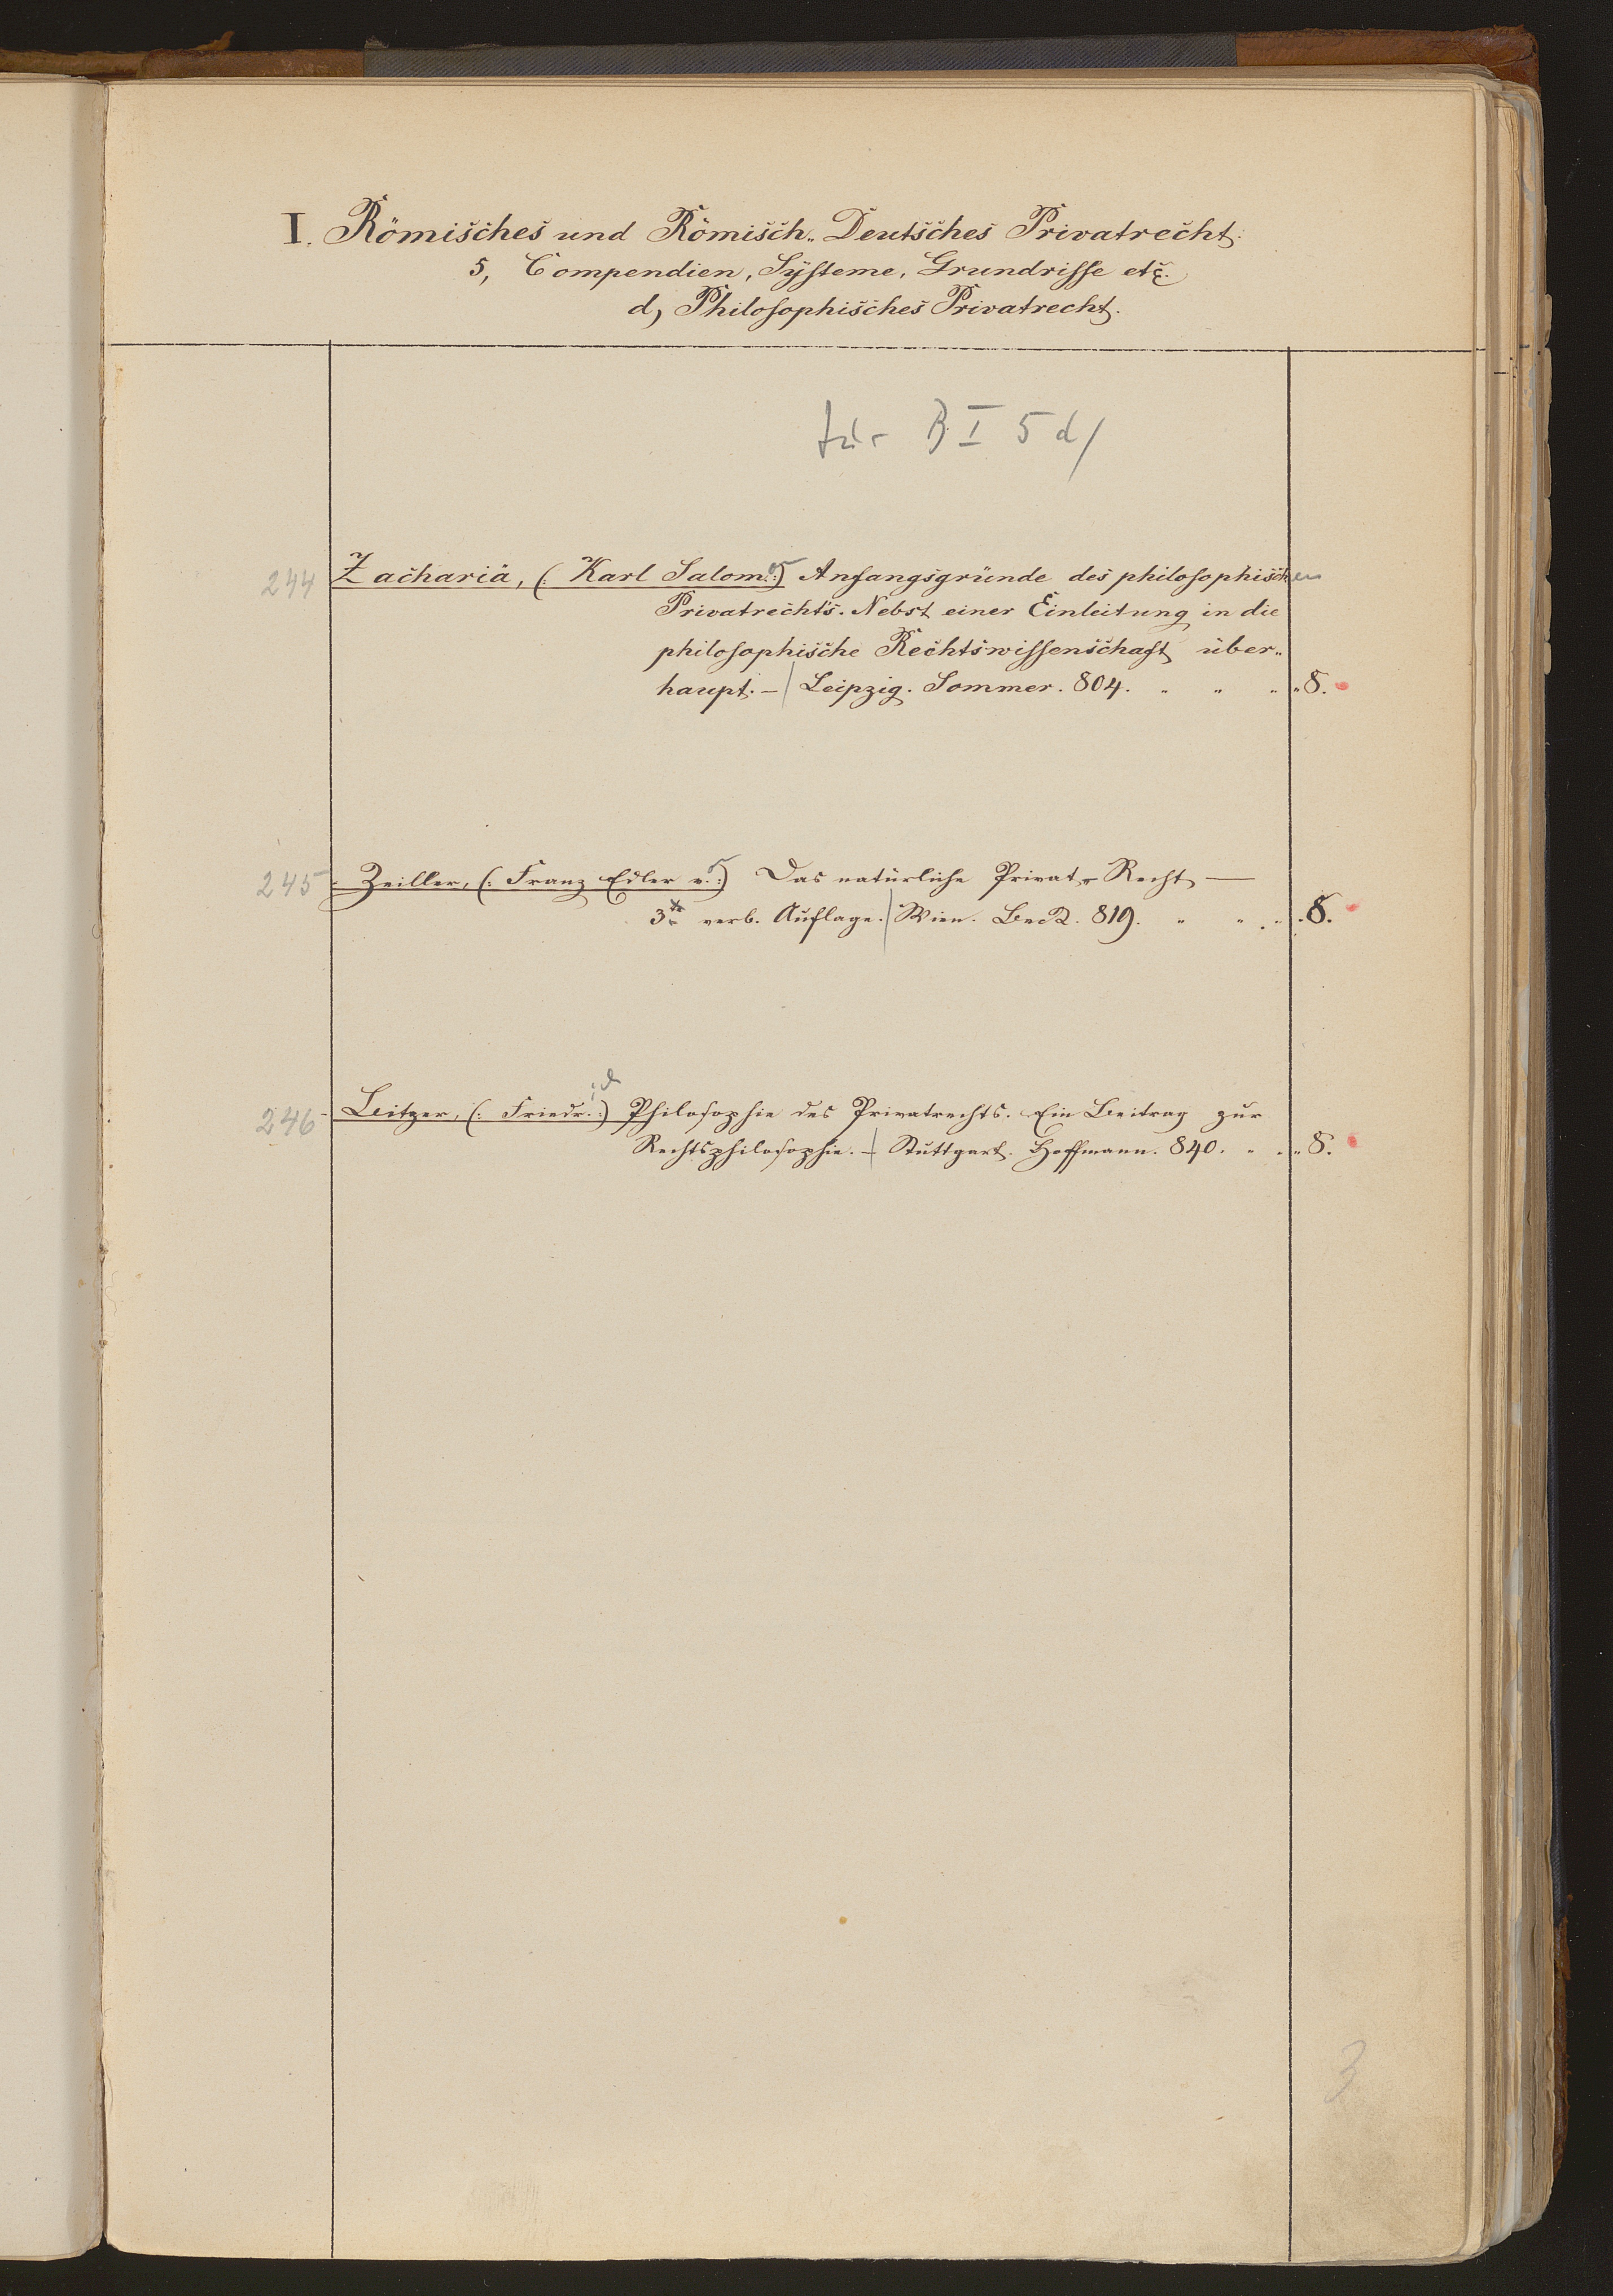 I. Römisches und Römisch-Deutsches Privatrecht.
5, Compendien, Systeme, Grundrisse etc.
d, Philosophisches Privatrecht.
für B I 5 d/
244 Zachariä, (: Karl Salom. :) Anfangsgründe des philosophischen
Privatrechts. Nebst einer Einleitung in die
philosophische Rechtswissenschaft über-
haupt. – / Leipzig. Sommer. 804. „ „ „ „ 8.
245 Zeiller, (: Franz Edler v. :) Das natürliche Privat-Recht –
3te verb. Auflage. / Wien. Beck. 819. „ „ „ . 8.
246 Beitzer, (: Friedr. :) Philosophie des Privatrechts. Ein Beitrag zur
Rechtsphilosophie. – / Stuttgart. Hoffmann. 840. „ „ „ 8.
3